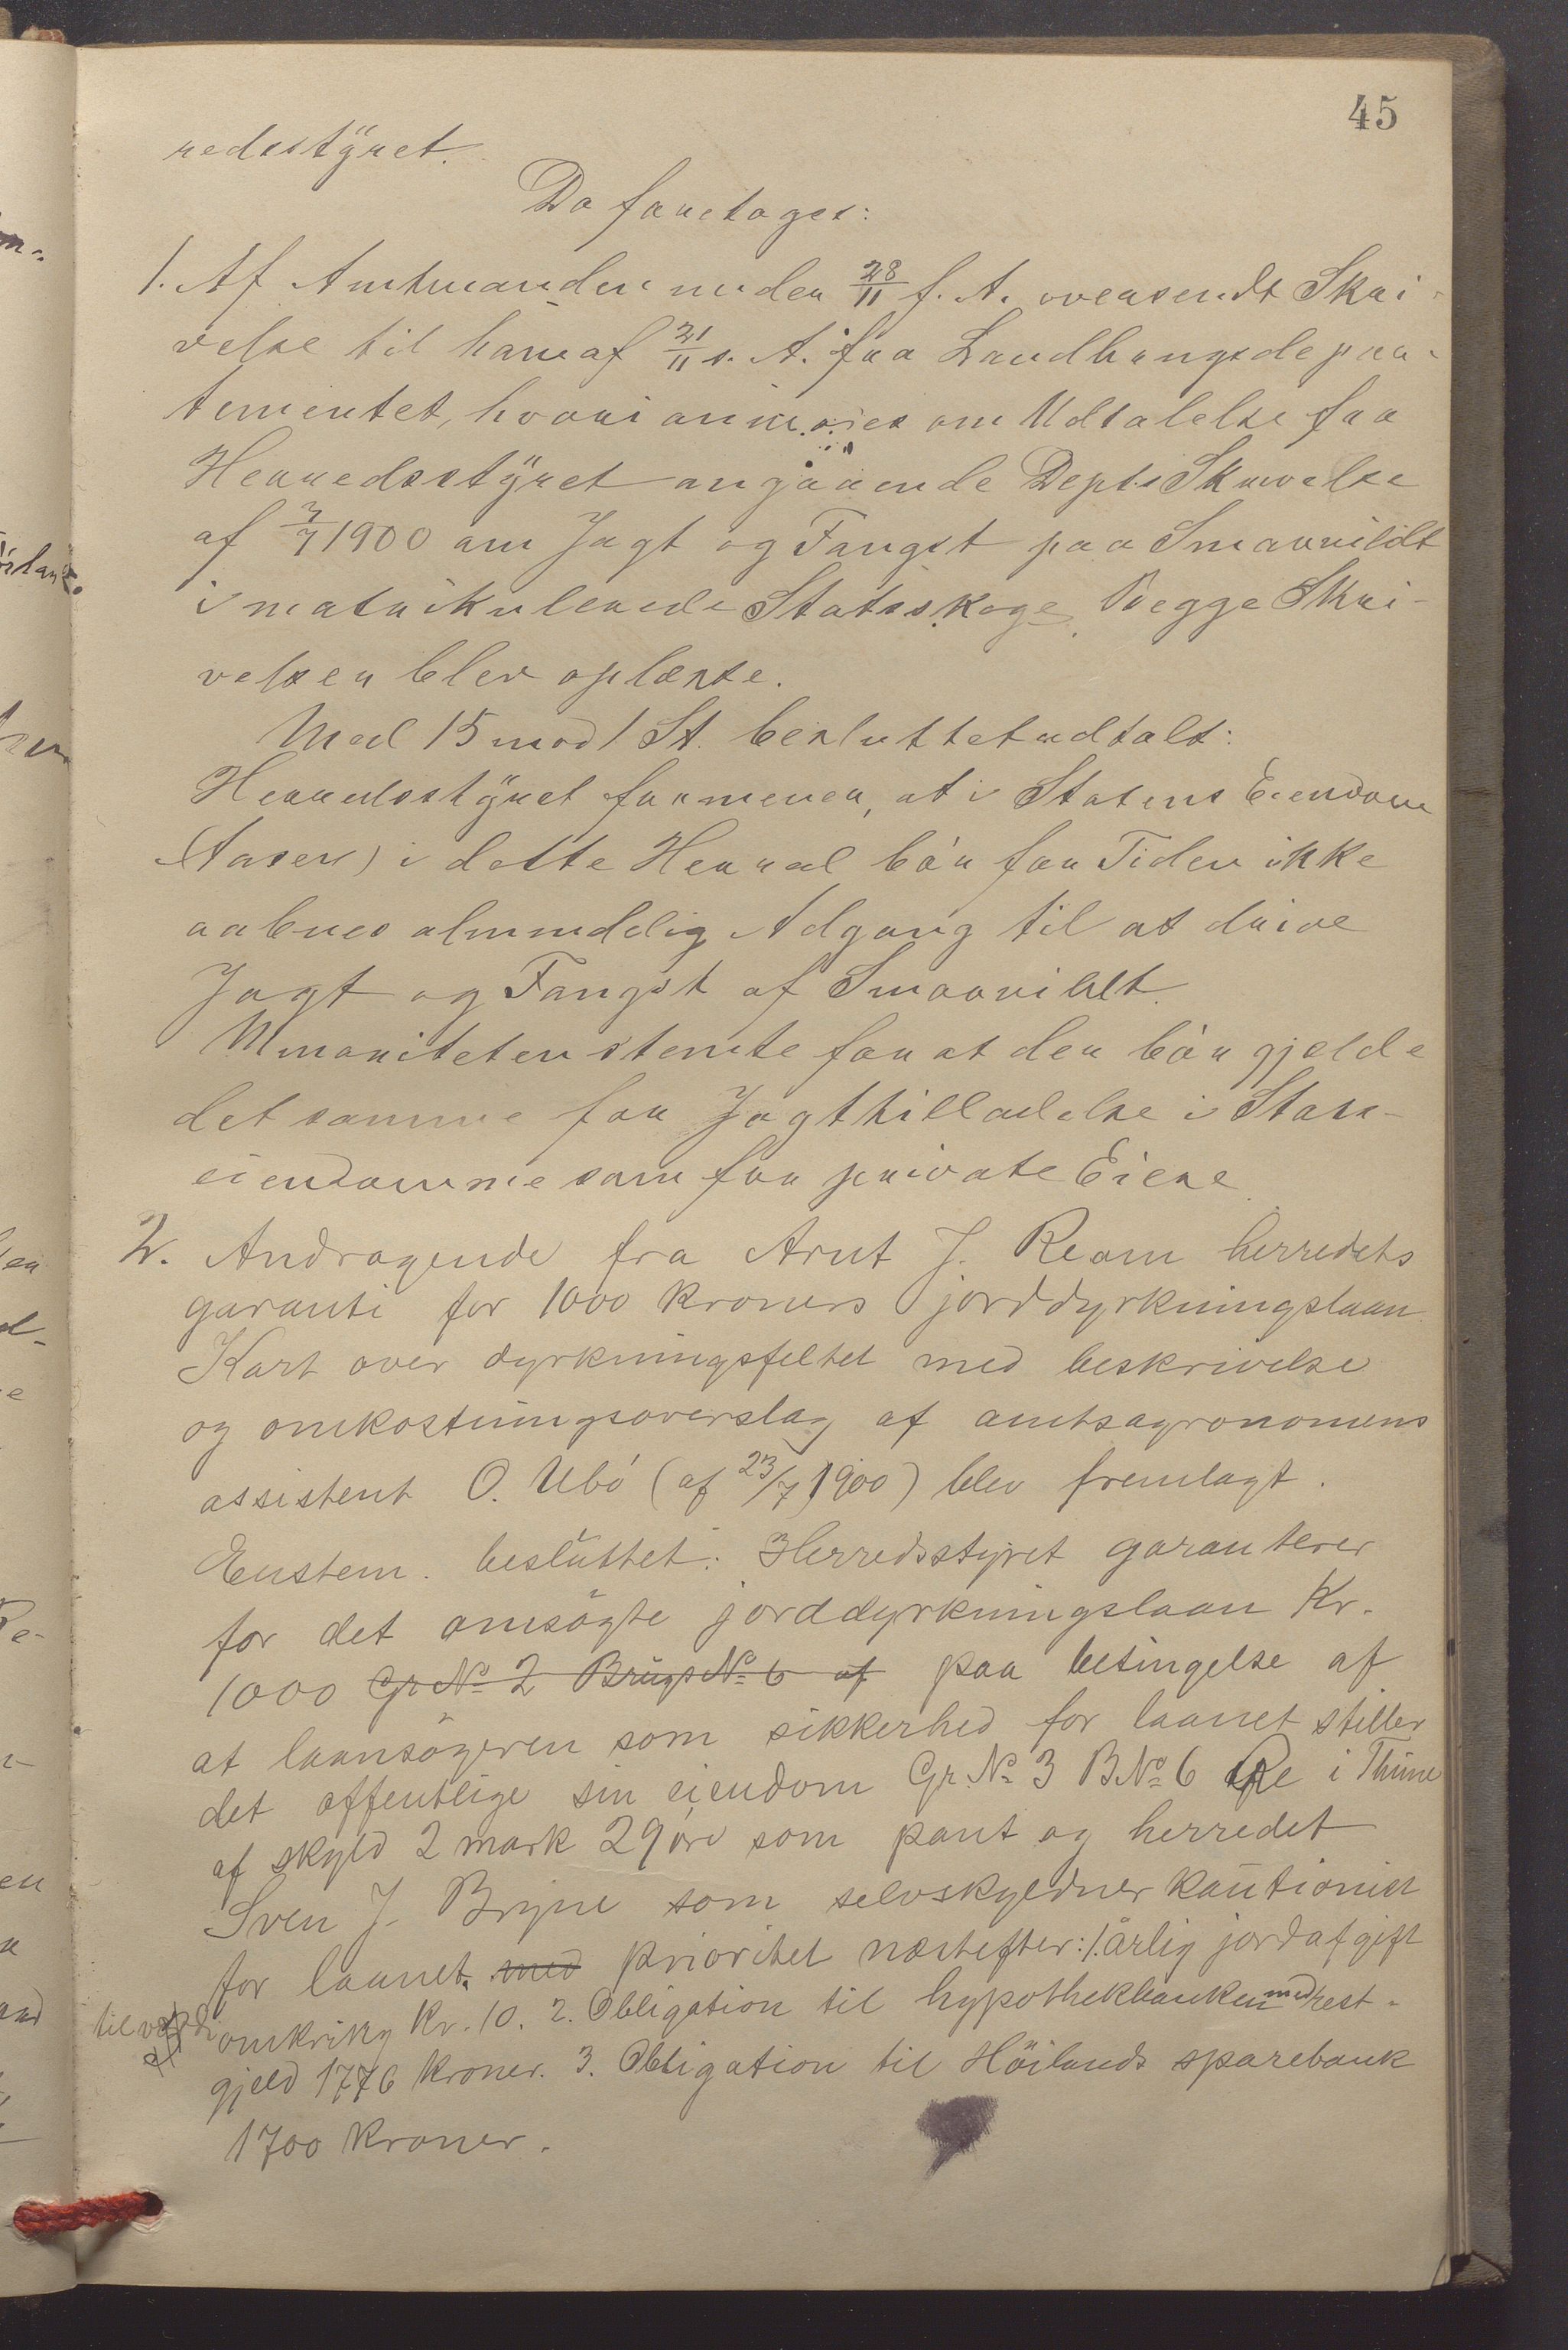 45
redsstyret.
Da foretages:
1. Af Amtmanden under 28/11 f. A. oversendt Skri-
velse til ham af 21/11 s. A. fra Landbrugsdepar-
tementet, hvori anmodes om Udtalelse fra
Herredsstyret angaaende Depts Skrivelse
af 7/7 1900 om Jagt og Fangst paa Smaavildt
i matrikulerede Statsskoge. Begge Skri-
velser blev oplæste.
Med 15 mod 1 St. besluttet udtalt:
Herredsstyret formener, at i Statens Eiendom
(Aasen) i dette Herred bör for Tiden ikke
aabnes almindelig Adgang til at drive
Jagt og Fangst af Smaavildt.
Minoriteten stemte for at der bör gjelde
det samme for Jagttilladelse i Stats-
eiendomme som for private Eiere.
2. Andragende fra Arnt J. Re om herredets
garanti for 1000 kroners jorddyrkningslaan
Kart over dyrkningsfeltet med beskrivelse
og omkostningsoverslag af amtsagronomens
assistent O. Ubö (af 23/7 1900) blev fremlagt.
Enstem. besluttet: Herredsstyret garanterer
for det omsögte jorddyrkningslaan Kr.
1000 Gr No 2 Brugs No 6 af paa betingelse af
at laansögeren som sikkerhed for laanet stiller
det offentlige sin eiendom Gr. No 3 B No 6 Re i Thime
af skyld 2 mark 29 öre som pant og herredet
Sven J. Bryne som selvskyldner kautionist
for laanet. med prioritet næstefter: 1. årlig jordafgift
til værdi
omkring Kr. 10. 2. Obligation til hypothekbanken med rest-
gjeld 1776 kroner. 3. Obligation til Höilands sparebank
1700 kroner.